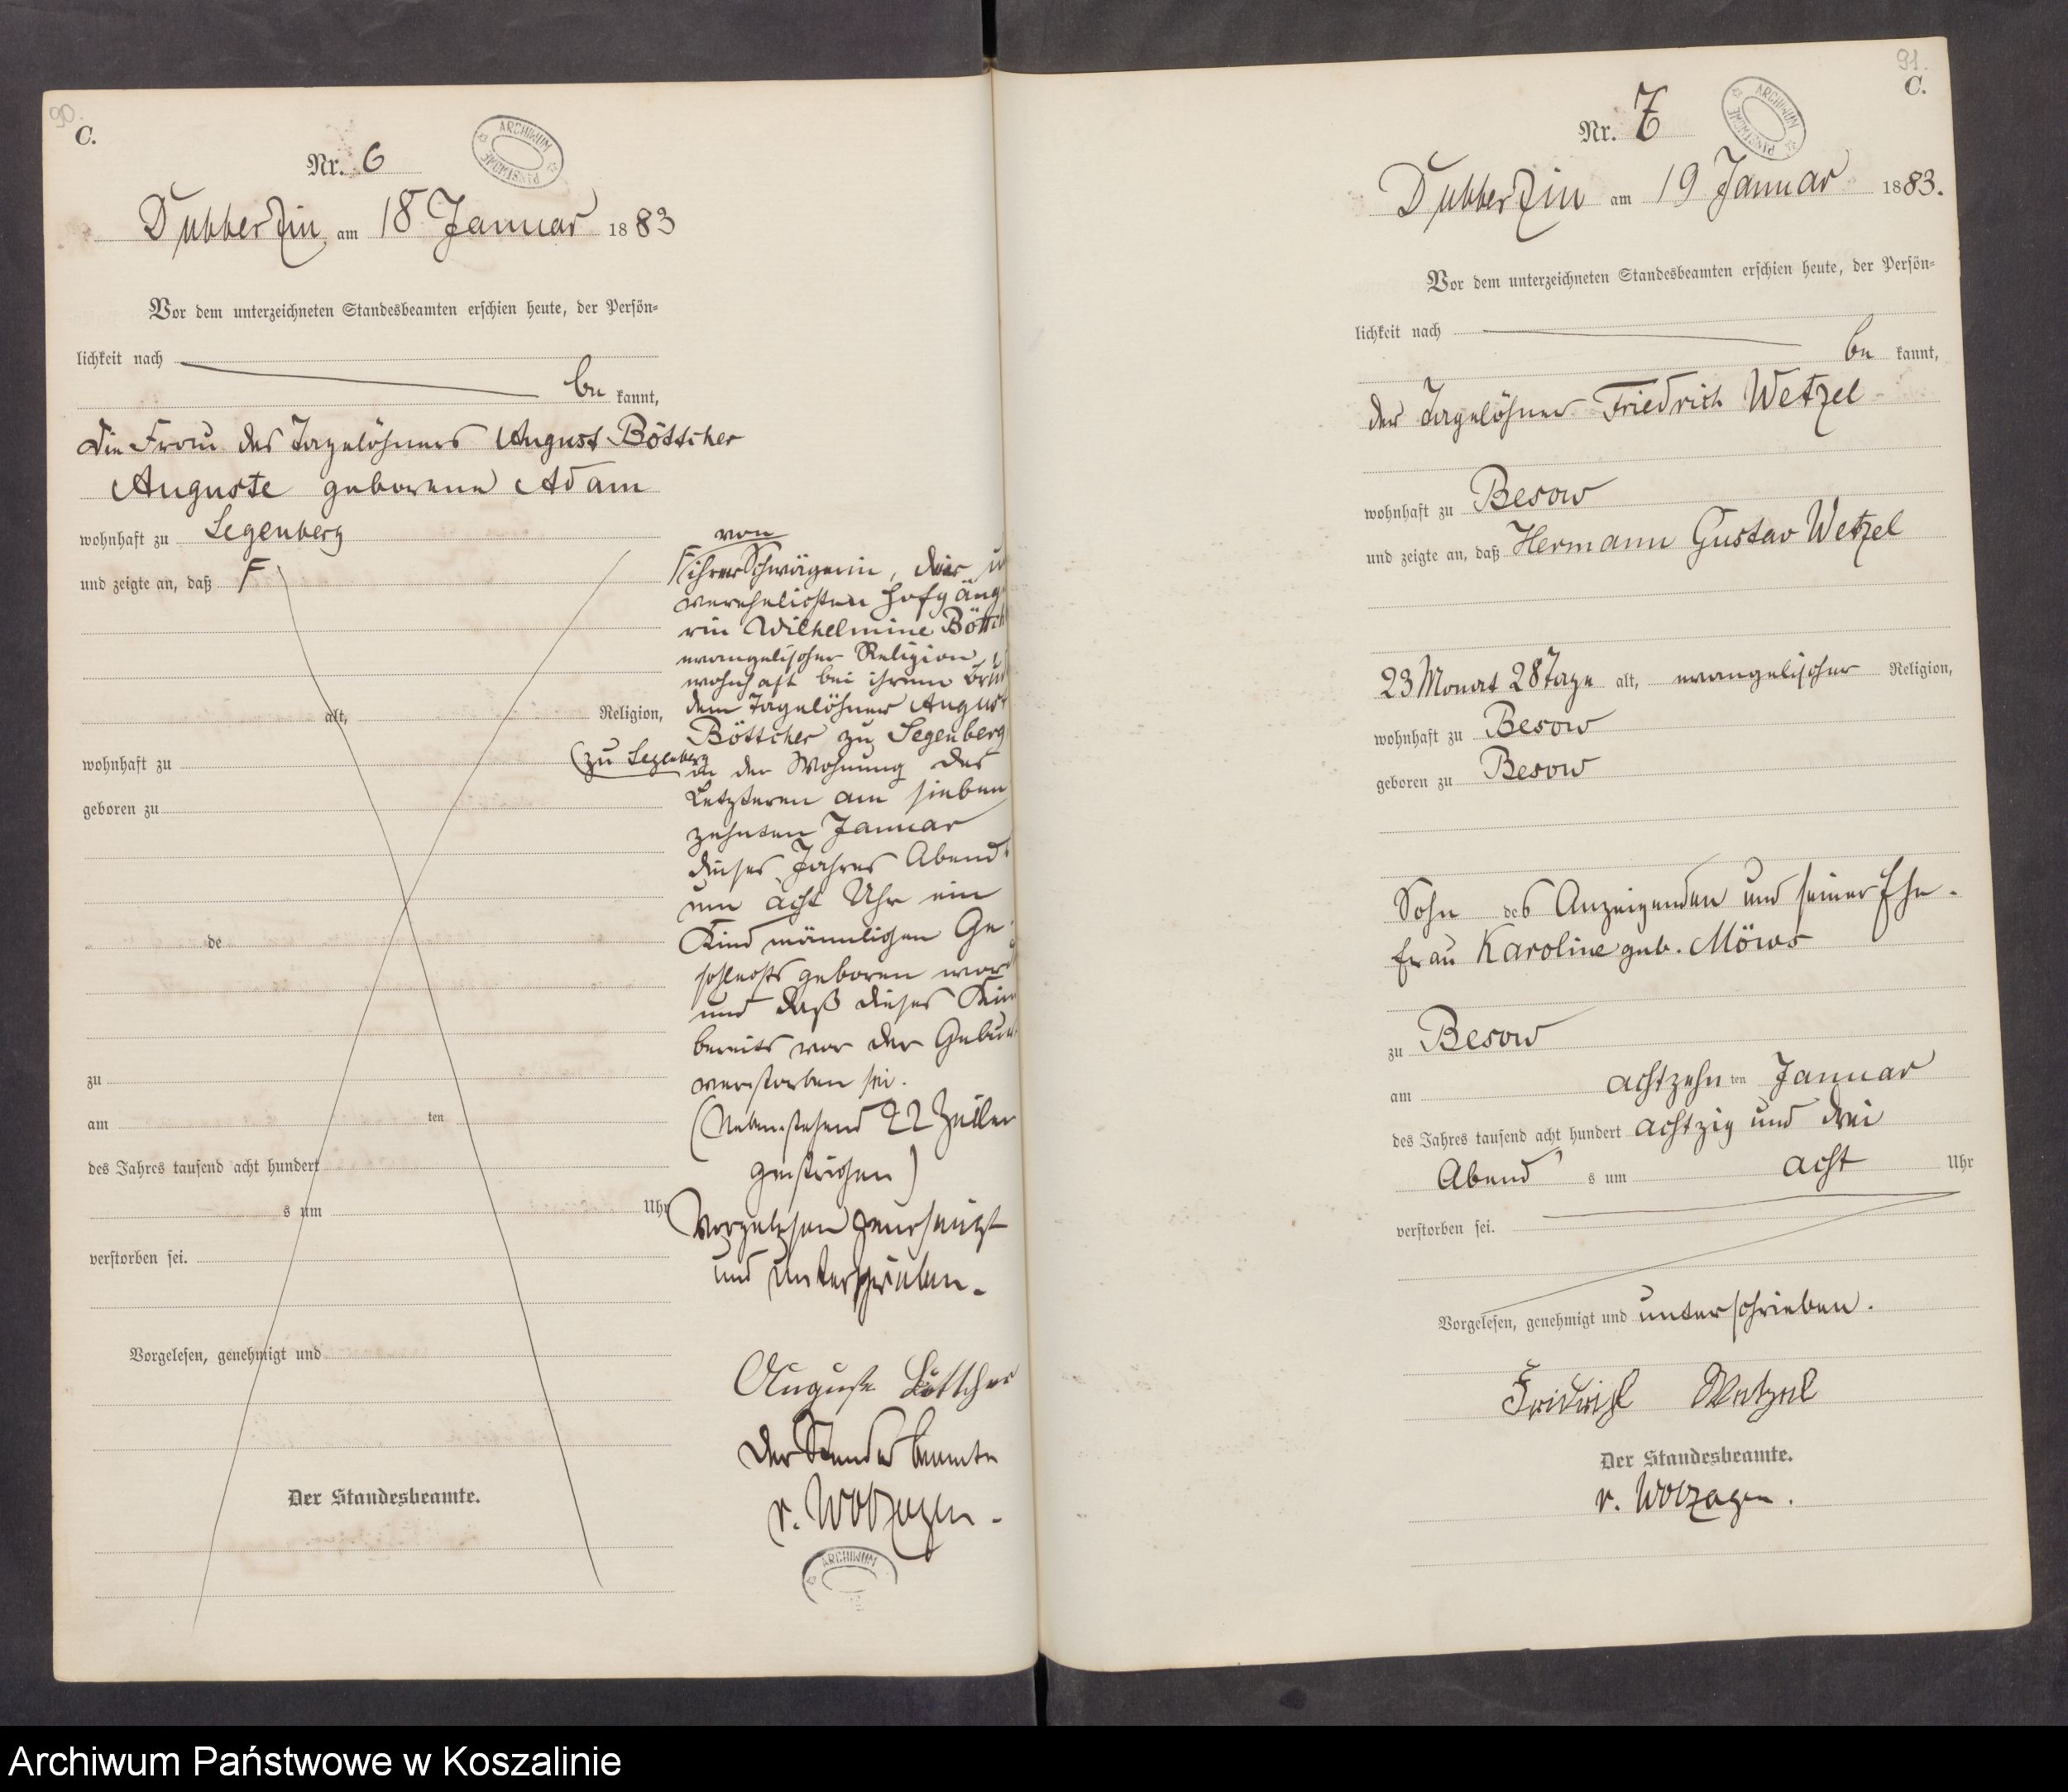 90.
C.
ARCHIWUM PAŃSTWOWE
Nr. 6
Dubberzin am 18 Januar 1883
Vor dem unterzeichneten Standesbeamten erschien heute, der Persön=
lichkeit nach
be kannt,
die Frau des Tagelöhners August Böttcher
Auguste geborene Adam
wohnhaft zu Segenberg
und zeigte an, daß F
alt, Religion,
wohnhaft zu
geboren zu
de
zu
am ten
des Jahres tausend acht hundert
s um Uhr
verstorben sei.
Vorgelesen, genehmigt und
Der Standesbeamte.
von
F ihrer Schwägerin, der u
verehelichten Hofgäng
rin Wilhelmine Böttch
evangelischer Religion,
wohnhaft bei ihrem Brud
dem Tagelöhner August
Böttcher zu Segenberg
(zu Segenberg
in der Wohnung des
Letzteren am sieben
zehnten Januar
dieses Jahres Abends
um acht Uhr ein
Kind männlichen Ge-
schlechts geboren word
und daß dieses Kin
bereits vor der Gebur
verstorben sei.
(Nebenstehend 22 Zeilen
gestrichen)
Vorgelesen genehmigt
und unterschrieben.
Auguste Böttcher
Der Standesbeamte
v. Wolzogen.
ARCHIWUM
91.
C.
ARCHIWUM PAŃSTWOWE
Nr. 7
Dubberzin am 19 Januar 1883.
Vor dem unterzeichneten Standesbeamten erschien heute, der Persön=
lichkeit nach
be kannt,
der Tagelöhner Friedrich Wetzel
wohnhaft zu Besow
und zeigte an, daß Hermann Gustav Wetzel
23 Monat 28 Tage alt, evangelischer Religion,
wohnhaft zu Besow
geboren zu Besow
Sohn des Anzeigenden und seiner Ehe-
frau Karoline geb. Möws
zu Besow
am achtzehn ten Januar
des Jahres tausend acht hundert achtzig und drei
Abend s um acht Uhr
verstorben sei.
Vorgelesen, genehmigt und unterschrieben.
Fridrich Wetzel
Der Standesbeamte.
v. Wolzogen.
Archiwum Państwowe w Koszalinie